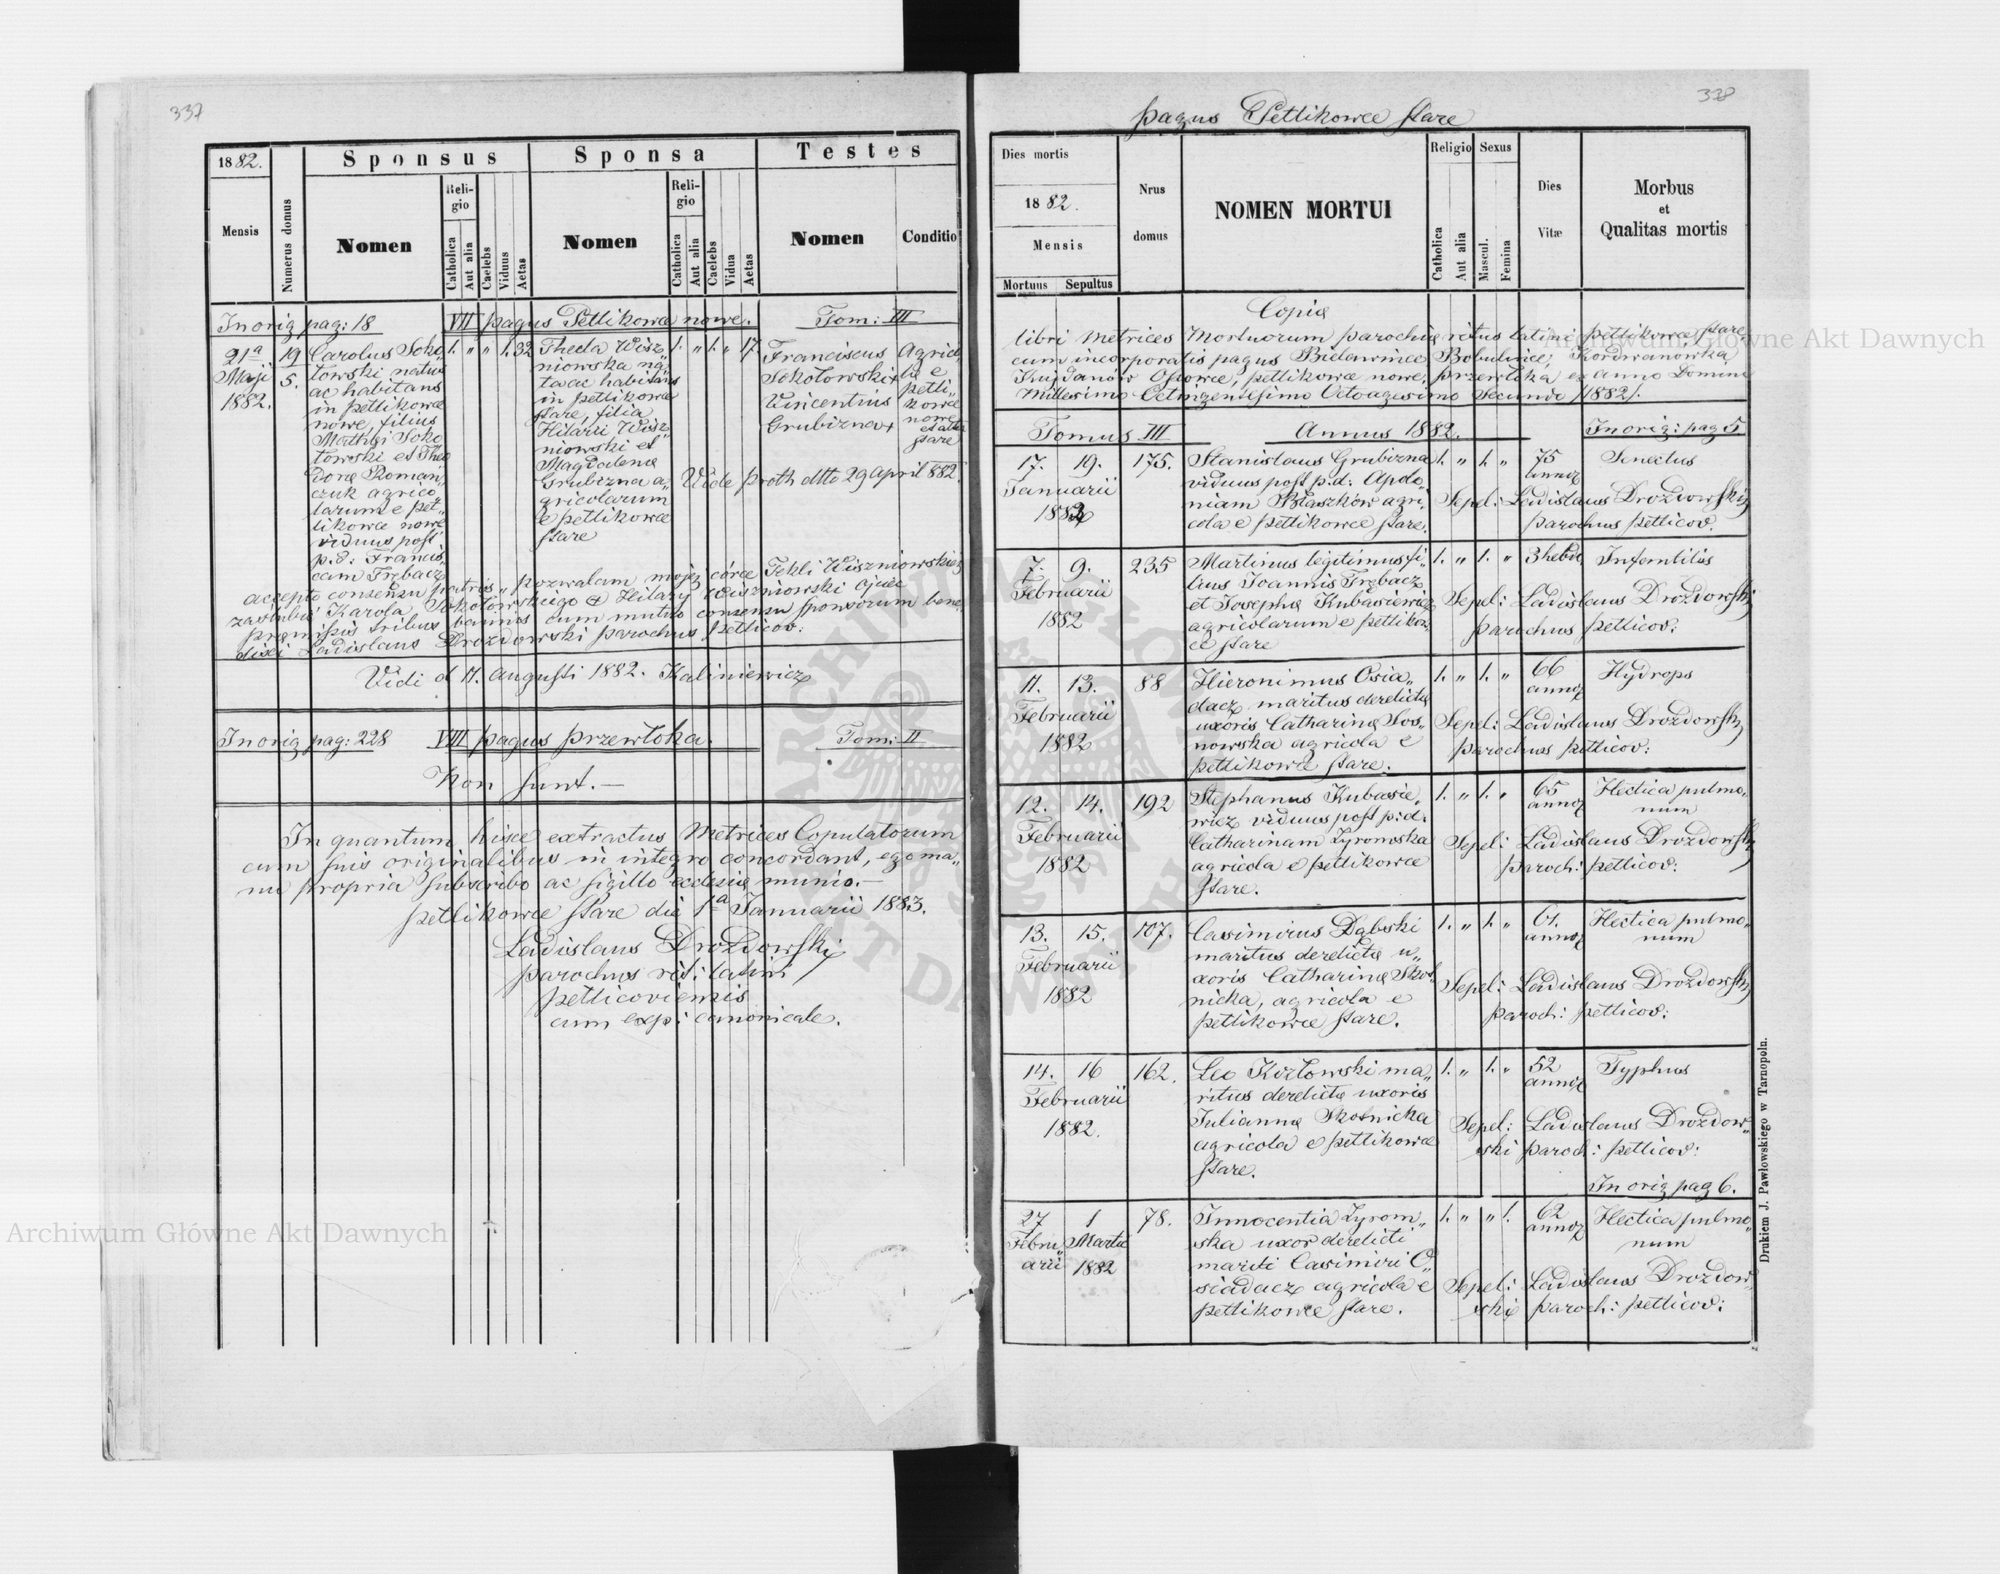 337
1882.
Mensis
Numerus domus
Sponsus
Nomen
Religio
Catholica
Aut alia
Caelebs
Viduus
Aetas
Sponsa
Nomen
Religio
Catholica
Aut alia
Caelebs
Vidua
Aetas
Testes
Nomen
Conditio
In orig pag: 18 VII pagus Petlikowce nowe. Tom: III
21ª
Maji
1882.
19
5.
Carolus Soko„
łowski natus
ac habitans
in petlikowce
nowe, filius
Mathęi Soko
łowski et Theo
dorę Roman„
czuk agrico
larum e pet„
likowce nowe
viduus post
p.d: Francis
cam Trębacz
1. „ „ 1. 32
Thecla Wisz„
niowska na„
ta ac habitans
in petlikowce
stare, filia
Hilarii Wisz
niowski et
Magdalenę
Grubizna a„
gricolarum
e petlikowce
stare
1. „ 1. „ 17.
Franciscus
Sokołowski +
Vincentius
Grubizna +
Agrico„
lę e
petli„
kowce
nowe
et altter
stare
Vide proth dtto 29 april 882.
accepto consensu patris „ pozwalam mojej córce Tekli Wiszniowskiej
zaślubić Karola Sokołowskiego + Hilary Wiszniowski ojciec
premissis tribus bannis cum mutuo consensu sponsorum bene„
dixi Ladislaus Drozdowski parochus petlicov:
Vidi d 17. augusti 1882. Kaliniewicz
In orig pag: 228 VIII pagus przewłoka. Tom: II
Non sunt. —
In quantum hisce extractus Metrices Copulatorum
cum suis originalibus in integro concordant, ego ma„
nu propria subscribo ac sigillo ecclesię munio. —
petlikowce stare die 1ª Januarii 1883.
Ladislaus Drozdowski
parochus rit: latini
petlicoviensis
cum exp: canonicale.
338
pagus Petlikowce stare
Dies mortis
1882.
Mensis
Mortuus
Sepultus
Nrus
domus
NOMEN MORTUI
Religio
Catholica
Aut alia
Sexus
Mascul.
Femina
Dies
Vitæ
Morbus
et
Qualitas mortis
Copia
libri Metrices Mortuorum parochię ritus latini petlikowce stare
cum incorporatis pagus Bielawince Bobulince, Kordwanowka
Kujdanów Ossowce, petlikowce nowe, przewłoka ex anno Domini
Millesimo Octingentesimo Octoagesimo Secundo /1882/.
Tomus III Annus 1882. In orig: pag 5
17. 19.
Januarii
1882
175.
Stanislaus Grubizna
viduus post p.d: Apolo„
niam Błaszków agri„
cola e petlikowce stare.
1. „ 1. „
75
annoz
Senectus
Sepel: Ladislaus Drozdowski
parochus petlicov.
7. 9.
Februarii
1882
235
Martinus legitimus fi„
lius Joannis Trębacz
et Josephę Kubasiewicz
agricolarum e petlikow„
ce stare
1. „ 1. „
3 hebd
Infantilis
Sepel: Ladislaus Drozdowski
parochus petlicov:
11. 13.
Februarii
1882
88
Hieronimus Osia„
dacz, maritus derelictę
uxoris Catharinę Sos„
nowska agricola e
petlikowce stare.
1. „ 1. „
66
annoz
Hydrops
Sepel: Ladislaus Drozdowski
parochus petlicov:
12. 14.
Februarii
1882
192
Stephanus Kubasie„
wicz viduus post p.d.
Catharinam Zyromska
agricola e petlikowce
stare.
1. „ 1. „
65
annoz
Hectica pulmo„
num
Sepel: Ladislaus Drozdowski
paroch: petlicov:
13. 15.
Februarii
1882
107.
Casimirus Dąbski
maritus derelictę u„
xoris Catharinę Skot„
nicka, agricola e
petlikowce stare.
1. „ 1. „
61.
annoz
Hectica pulmo„
num
Sepel: Ladislaus Drozdowski
paroch: petlicov:
14. 16
Februarii
1882.
162.
Leo Kozłowski ma„
ritus derelictę uxoris
Juliannę Skotnicka
agricola e petlikowce
stare.
1. „ 1. „
52
annoz
Typhus
Sepel: Ladislaus Drozdow„
ski paroch: petlicov:
In orig pag 6.
27 1
Febru„ Martii
arii 1882
78.
Innocentia Zyrom„
ska uxor derelicti
mariti Casimiri O„
siadacz agricola e
petlikowce stare.
1. „ „ 1.
62
annoz
Hectica pulmo„
num
Sepel: Ladislaus Drozdow„
ski paroch: petlicov:
Drukiem J. Pawłowskiego w Tarnopolu.
Archiwum Główne Akt Dawnych
Archiwum Główne Akt Dawnych
ARCHIWUM GŁÓWNE AKT DAWNYCH